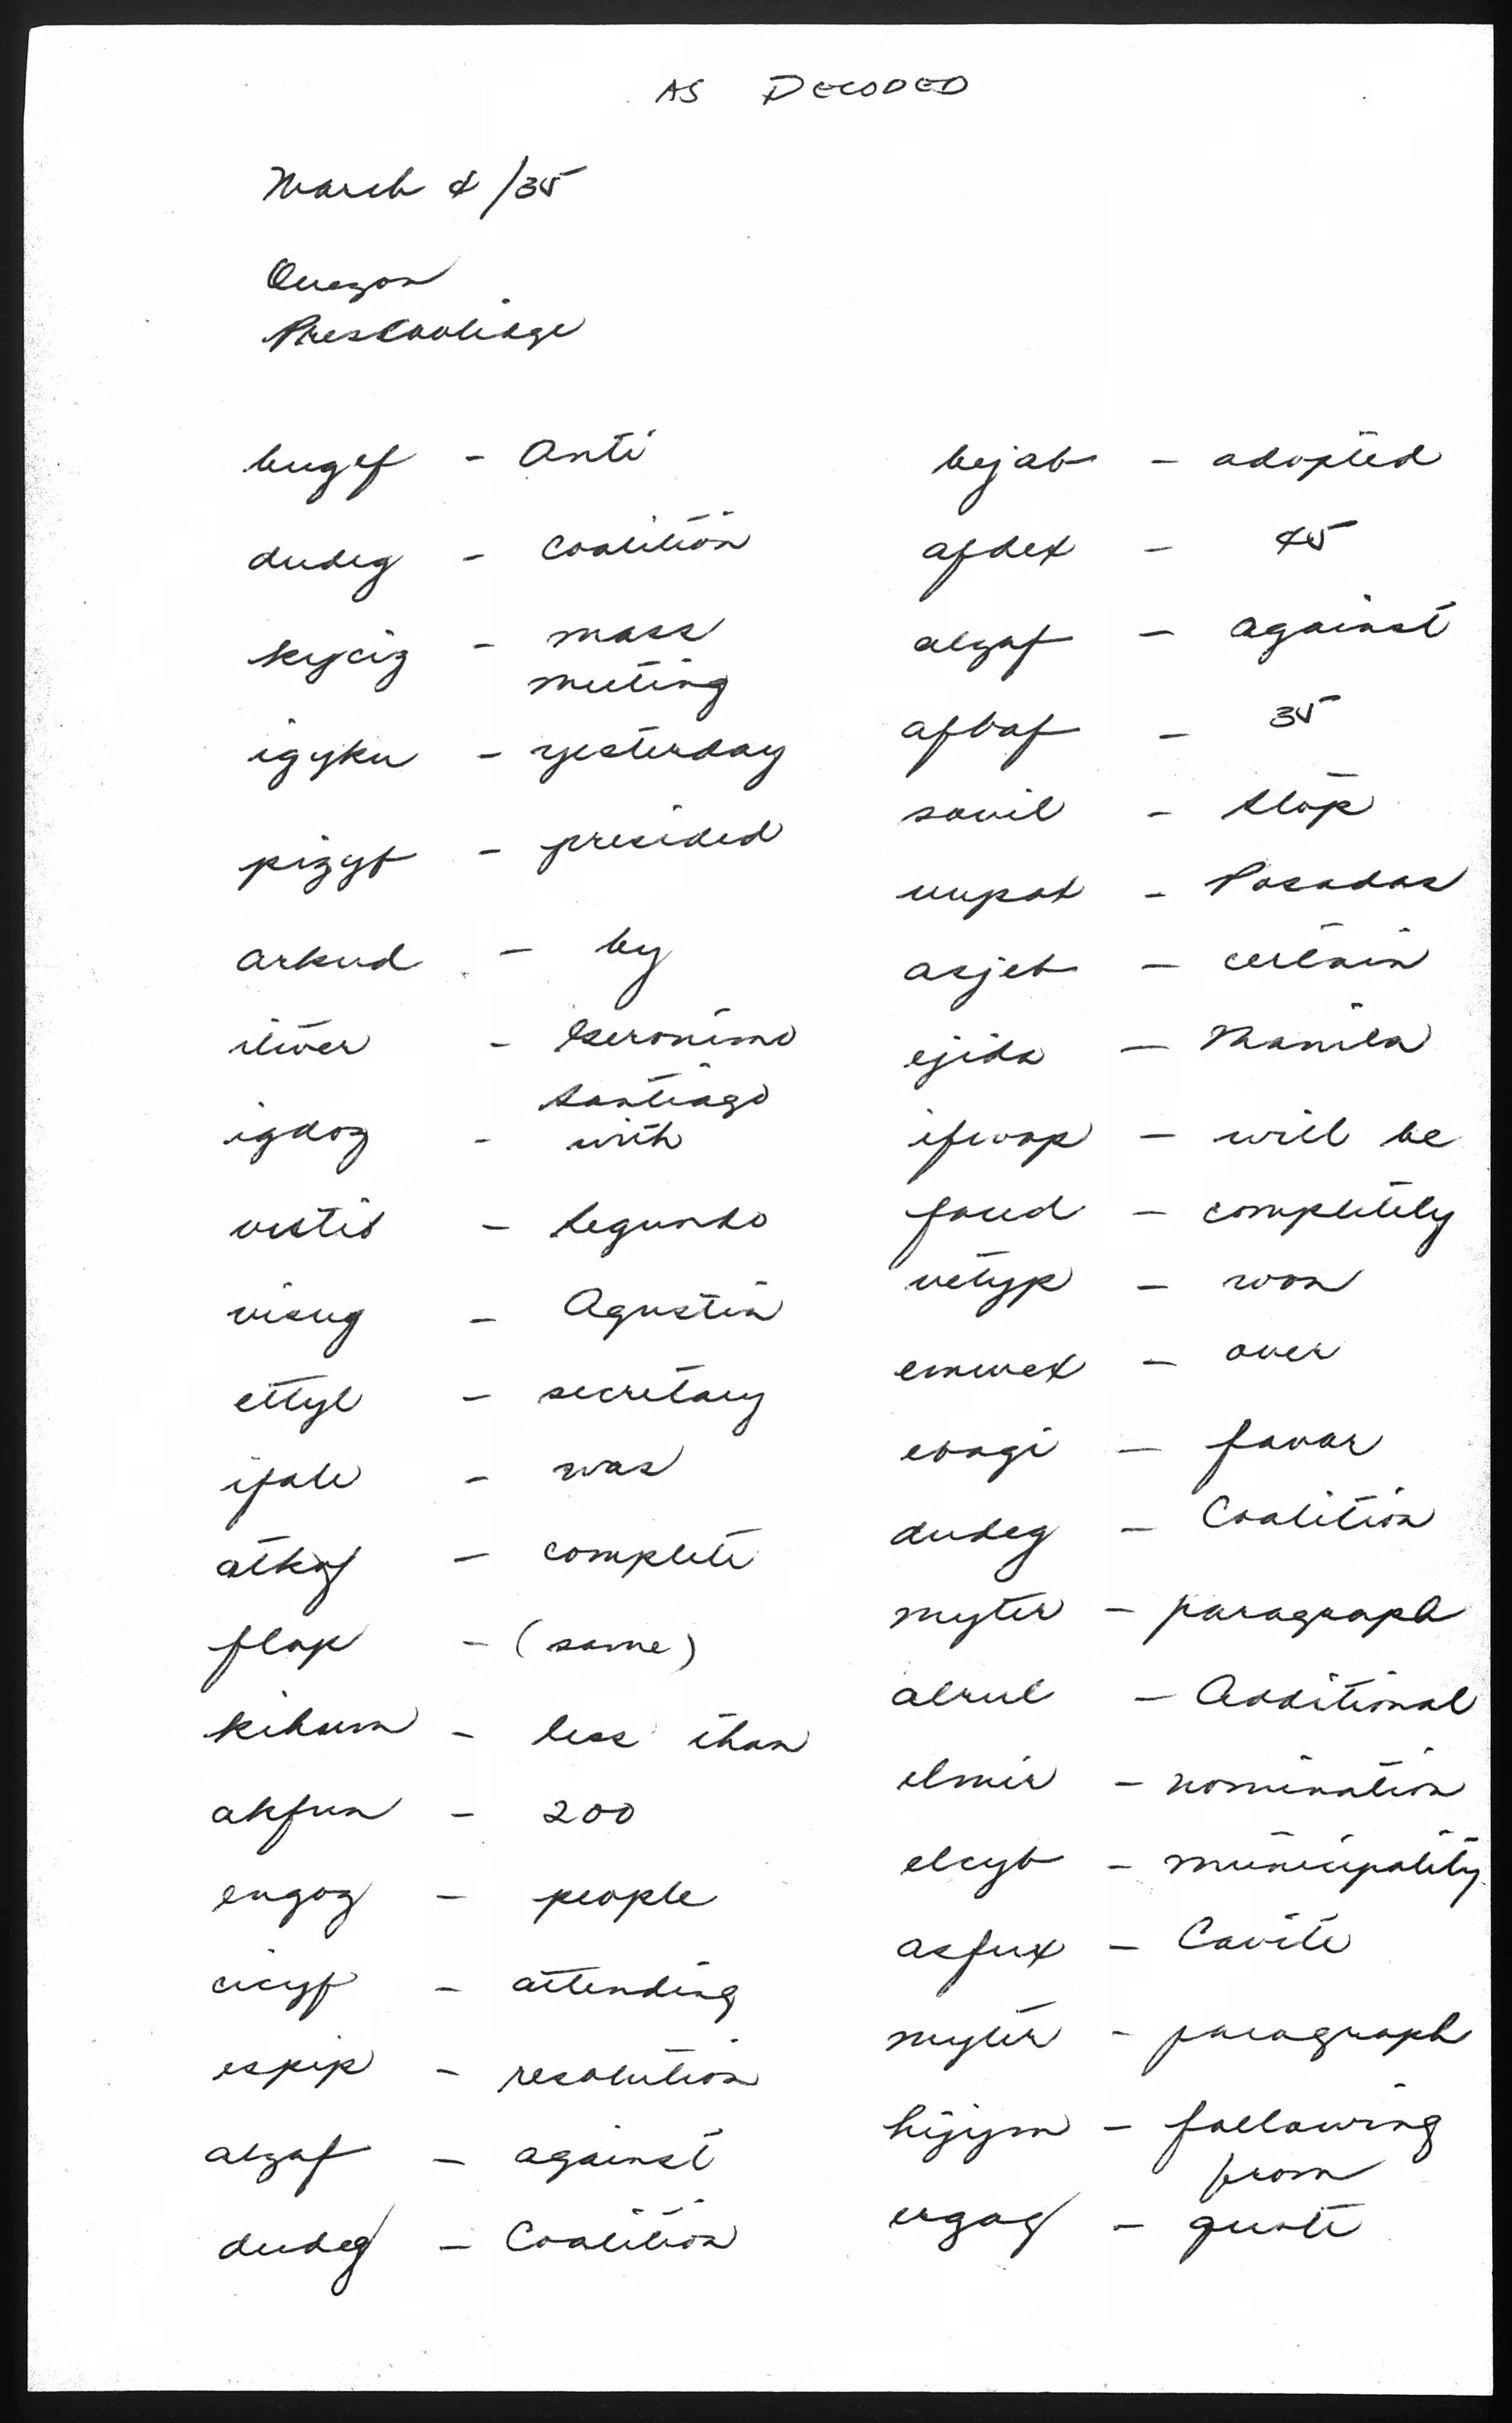 AS DECODED
March 4/35
Quezon
PresCoolidge
bugef - Anti
dudeg - Coalition
kyciz - mass
meeting
igyku - yesterday
pizyb - presided
arkud - by
iliver - Geronimo
Santiago
igdoz - with
vistid - Segundo
visug - Agustin
ettyl - secretary
ifale - was
atkof - complete
flop - (same)
kihum - less than
akfun - 200
engoz - people
cicyf - attending
espip - resolution
alzaf - against
dudeg - Coalition
bejab - adopted
afdex - 45
alzaf - against
afbaf - 35
sovil - stop
uupad - Posadas
asjeb - certain
ejida - Manila
ifwop - will be
foced - completely
vetyp - won
emwex - over
evagi - favor
dudeg - Coalition
myter - paragraph
alrul - Additional
elmir - nomination
elcyb - municipality
asfux - Cavite
myter - paragraph
hijym - following
from
ergag - quote